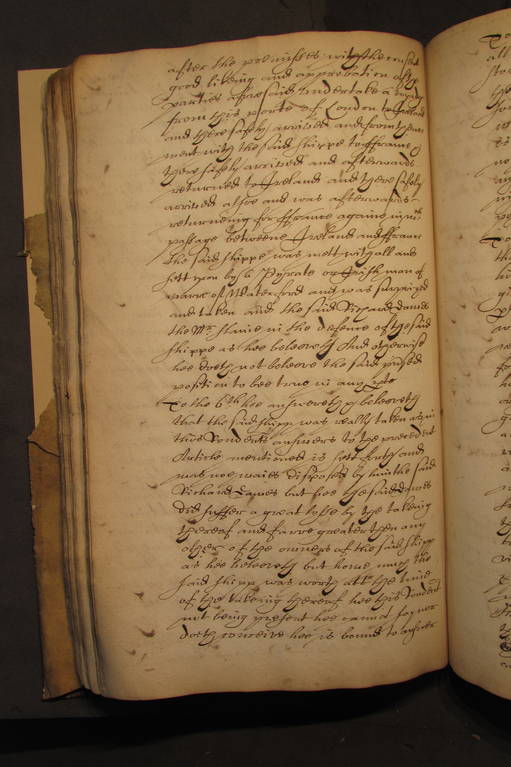 after the premisses with the consent
good likeing and approbation of the
parties aforesaid undertake a voyage
from this porte of London to Ireland
and there safely arrived and from thence
went with the said shippe to ffrance &
there safely arrived and afterwards
returned to Ireland and there safely
arrived alsoe and was afterwards
returneing for ffrance againe in w:ch
passage betweene Ireland and ffrance
the said shippe was mett withall and
sett upon by a Pyrate or Irish man of
warre of Waterford and was surprized
and taken and the said Richard Dawes
the M:r slaine in the defence of the said
shippe as hee beleeveth And otherwise
hee doeth not beleeve the said
position to bee true in any
To the 6:th hee answereth & beleeveth
that the said shipp was really taken as in
this Rendents answers to the precedent
Article mentioned is sett forth and
was noe waies disposed by him the said
Richard Dawes but hee the said Dawes
did suffer a great losse by the takeing
thereof and farre greater then any
other of the owners of the said shipp
as hee beleeveth but howe much the
said shipp was worth att the time
of the takeing thereof hee this Rendent
not being present hee cannot saye nor
doeth conceive hee is bound to answer